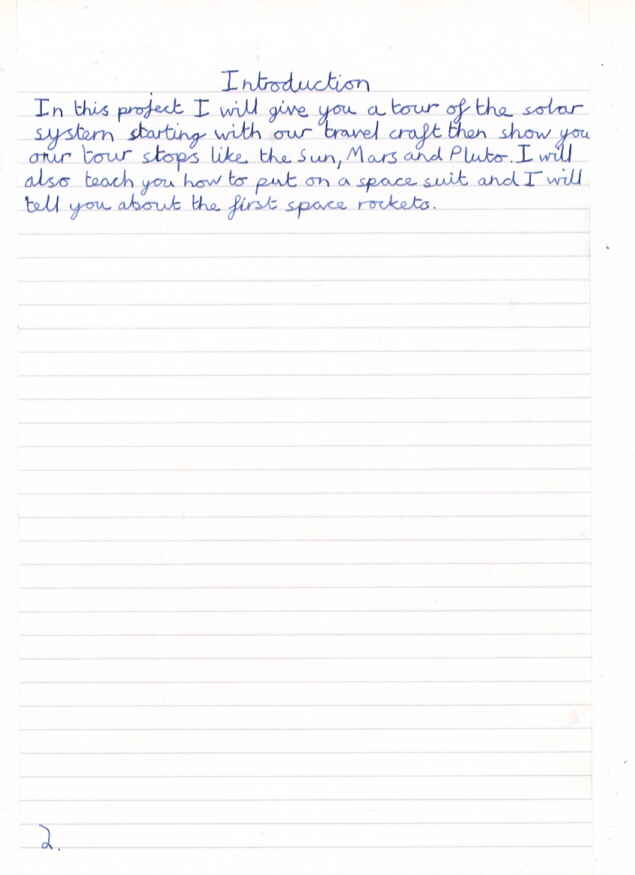 Introduction
In this project I will give you a tour of the solar
system starting with our travel craft then show you
our tour stops like the Sun, Mars and Pluto. I will
also teach you how to put on a space suit and I will
tell you about the first space rockets.
2.